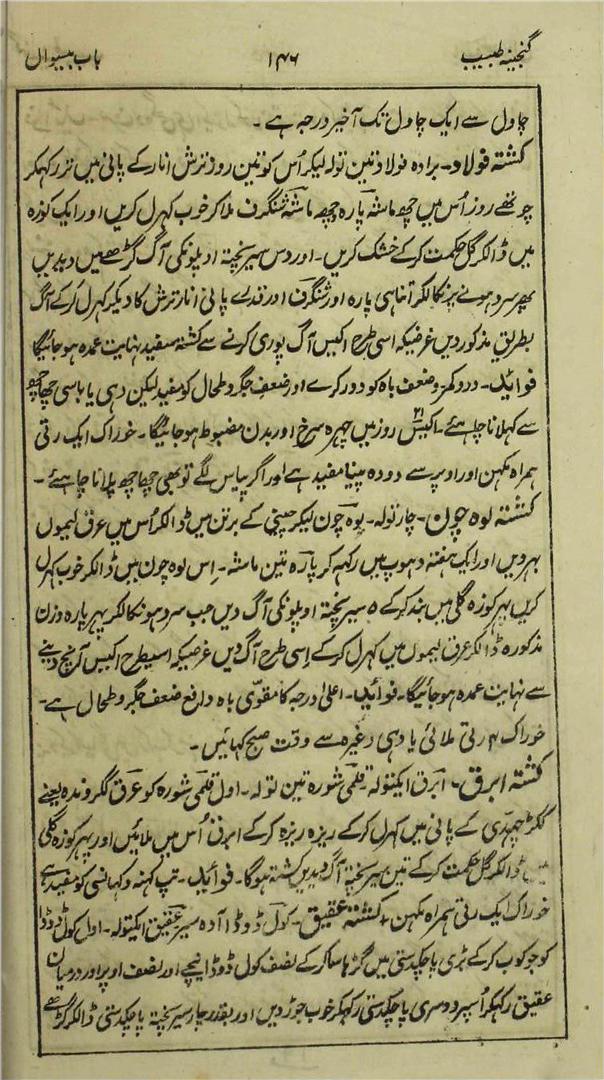 گنجینہ طبیب ۱۴۶ باب بیسواں
چاول سے ایک چاول تک آخیر درجہ ہے ۔
کشتہ فولاد ۔ برادہ فولاد تین تولہ لیکر اُس کو تین روز ترش انار کے پانی میں تر رکھکر
چوتھے روز اُس میں چھ ماشہ پارہ چھ ماشہ شنگرف ملا کر خوب کہرل کریں اور ایک کوزہ
میں ڈالکر گل حکمت کر کے خشک کریں ۔ اور دس سیر پختہ اوپلونکی آگ گڑھے میں دیدیں
پھر سرد ہونے پر نکالکر اتنا ہی پارہ اور شنگرف اور قدرے پانی انار ترش کا دیکر کہرل کر کے آگ
بطریق مذکور دیں غرضیکہ اسی طرح اکیس آگ پوری کرنے سے کشتہ سفید نہایت عمدہ ہو جائیگا
فوائد ۔ درد کمر و ضعف باہ کو دور کرے اور ضعف جگر و طحال کو مفید لیکن دہی یا باسی چھاچھ
سے کہلانا چاہئے ۔ اکیس ۲۱ روز میں چہرہ سرخ اور بدن مضبوط ہو جائیگا ۔ خوراک ایک رتی
ہمراہ مکہن اور اوپر سے دودہ پینا مفید ہے اور اگر پیاس لگے تو بھی چھاچھ پلانا چاہئے ۔
کشتہ لوہ چون ۔ چار تولہ ۔ لوہ چون لیکر چینی کے برتن میں ڈالکر اُس میں عرق لیموں
بہر دیں اور ایک ہفتہ دہوپ میں رکہہ کر پارہ تین ماشہ ۔ اِس لوہ چون میں ڈالکر خوب کہرل
کریں پہر کوزہ گلی میں بند کر کے ۵ سیر پختہ اوپلونکی آگ دیں جب سرد ہو نکالکر پہر پارہ وزن
مذکورہ ڈالکر عرق لیموں میں کہرل کر کے اِسی طرح آگ دیں غرضیکہ اسیطرح اکیس آنچ دینے
سے نہایت عمدہ ہو جائیگا ۔ فوائد ۔ اعلیٰ درجہ کا مقوّی باہ دافع ضعف جگر و طحال ہے ۔
خوراک ۴ رتی ملائی یا دہی وغیرہ سے وقت صبح کہائیں ۔
کشتہ ابرق ۔ ابرق ایکتولہ قلمی شورہ تین تولہ ۔ اول قلمی شورہ کو عرق گکروندہ یعنے
ککڑ چھدی کے پانی میں کہرل کر کے ریزہ ریزہ کر کے ابرق اُس میں ملائیں اور پہر کوزہ گلی
میں ڈالکر گل حکمت کر کے تین سیر پختہ آگ دیدیں کشتہ ہوگا ۔ فوائد ۔ تپ کہنہ و کہانسی کو مفید ہے
خوراک ایک رتی ہمراہ مکہن ۔ کشتہ عقیق ۔ کول ڈوڈا آدہ سیر عقیق ایکتولہ ۔ اول کول ڈوڈا
کو جوکوب کر کے بڑی پاچکدستی میں گڑہا سا کر کے نصف کول ڈوڈا نیچے اور نصف اوپر اور درمیان
عقیق رکہکر اُسپر دوسری پاچکدستی رکہکر خوب جوڑ دیں اور بقدر چار سیر پختہ پاچکدستی ڈالکر گڑھے